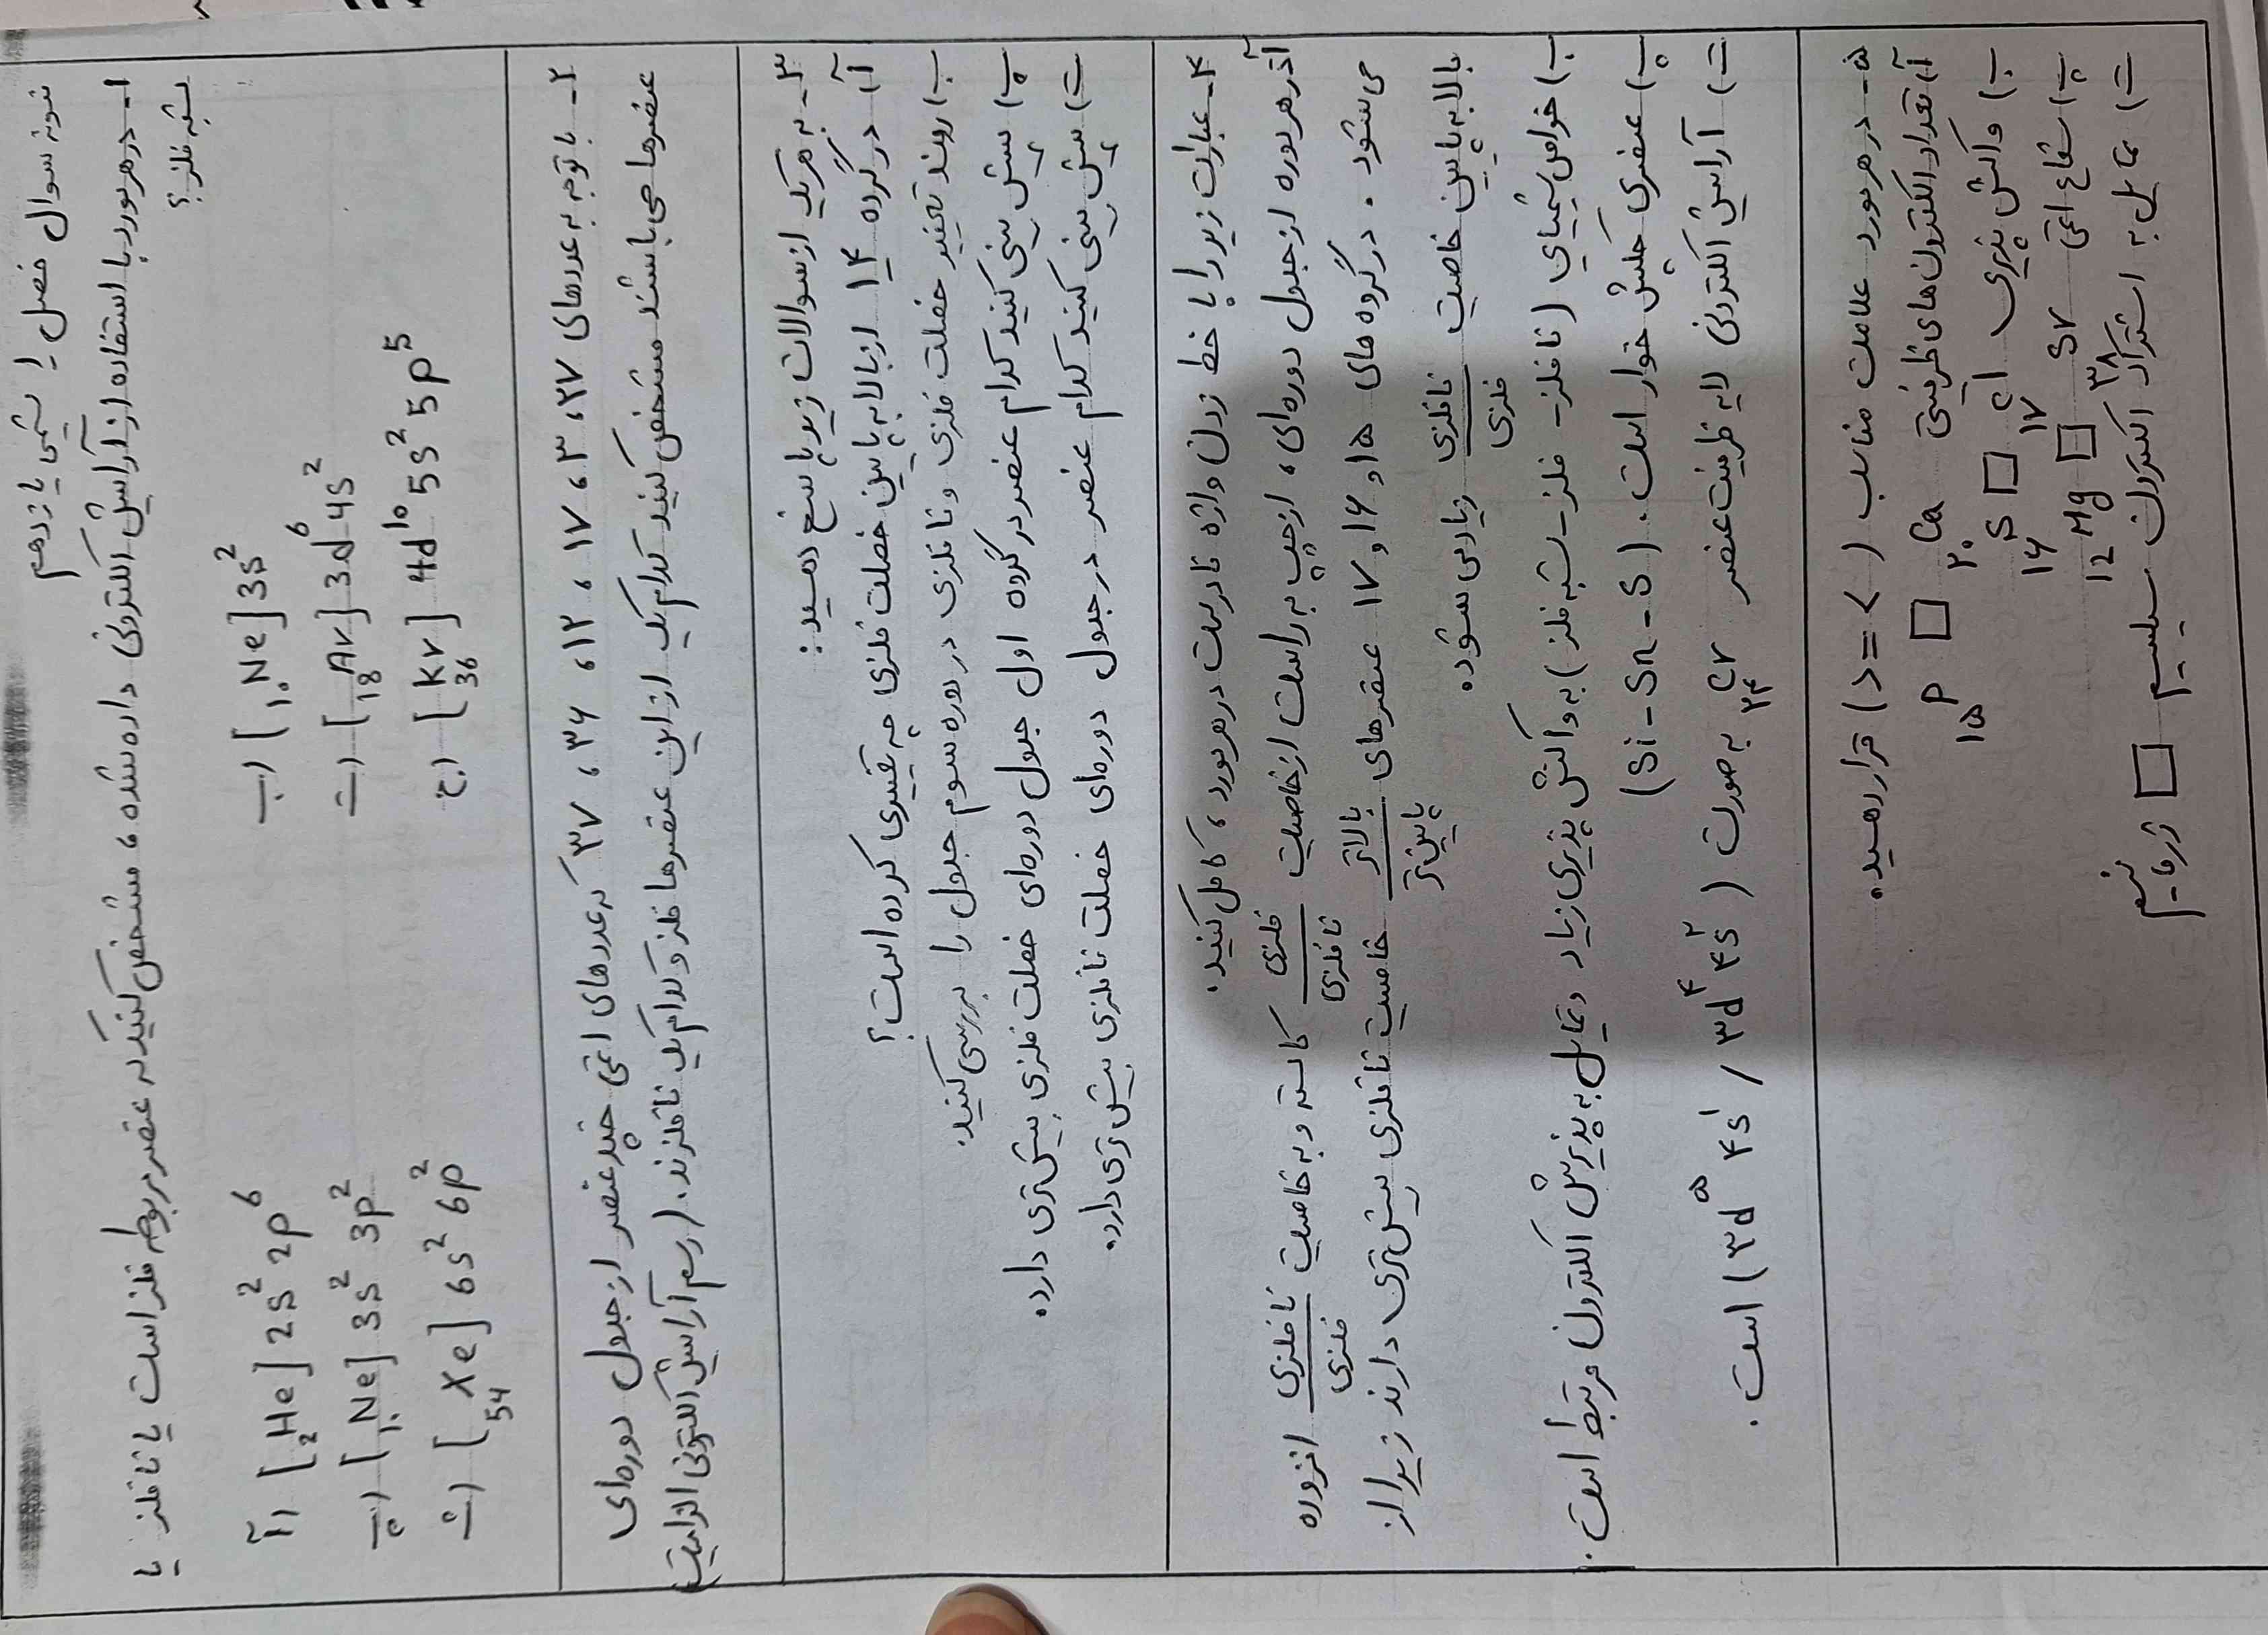 نمونه سوال فصل ۱ شیمی یازدهم
۱- در هر مورد با استفاده از آرایش الکترونی داده شده، مشخص کنید که عنصر مربوط فلز است یا نافلز یا
شبه فلز؟
آ) [₂He] 2s² 2p⁶ ب) [₁₀Ne] 3s²
پ) [₁₀Ne] 3s² 3p² ت) [₁₈Ar] 3d⁶ 4s²
ث) [₅₄Xe] 6s² 6p² ج) [₃₆Kr] 4d¹⁰ 5s² 5p⁵
۲- با توجه به عددهای ۲۷، ۳، ۱۷، ۱۲، ۳۶، ۳۷ که عددهای اتمی چند عنصر از جدول دوره‌ای
عنصرها می باشند مشخص کنید کدام یک از این عنصرها فلز و کدام یک نافلزند. (رسم آرایش الکترونی الزامیست)
۳- به هریک از سوالات زیر پاسخ دهید:
آ) در گروه ۱۴ از بالا به پایین خصلت فلزی چه تغییری کرده است؟
ب) روند تغییر خصلت فلزی و نافلزی در دوره سوم جدول را بررسی کنید.
پ) پیش بینی کنید کدام عنصر در گروه اول جدول دوره‌ای خصلت فلزی بیش‌تری دارد.
ت) پیش بینی کنید کدام عنصر در جدول دوره‌ای خصلت نافلزی بیش‌تری دارد.
۴- عبارت زیر را با خط زدن واژه نادرست در هر مورد، کامل کنید.
آ) در هر دوره از جدول دوره‌ای، از چپ به راست از خاصیت فلزی/نافلزی کاسته و به خاصیت نافلزی/فلزی افزوده
می شود. در گروه های ۱۵ و ۱۶ و ۱۷ عنصرهای بالاتر/پایین‌تر خاصیت نافلزی بیش‌تری دارند زیرا از
بالا به پایین خاصیت نافلزی/فلزی زیاد می شود.
ب) خواص شیمیایی (نافلز - فلز - شبه فلز) به واکنش پذیری زیاد و تمایل به پذیرش الکترون مرتبط است.
پ) عنصری چکش خوار است. (Si - Sn - S)
ت) آرایش الکترونی لایه ظرفیت عنصر ₂₄Cr به صورت (3d⁴ 4s² / 3d⁵ 4s¹) است.
۵- در هر مورد علامت مناسب (< = >) قرار دهید.
آ) تعداد الکترون های ظرفیتی ₂₀Ca □ ₁₅P
ب) واکنش پذیری ₁₷Cl □ ₁₶S
پ) شعاع اتمی ₃₈Sr □ ₁₂Mg
ت) تمایل به اشتراک الکترون سیلسیم □ ژرمانیم